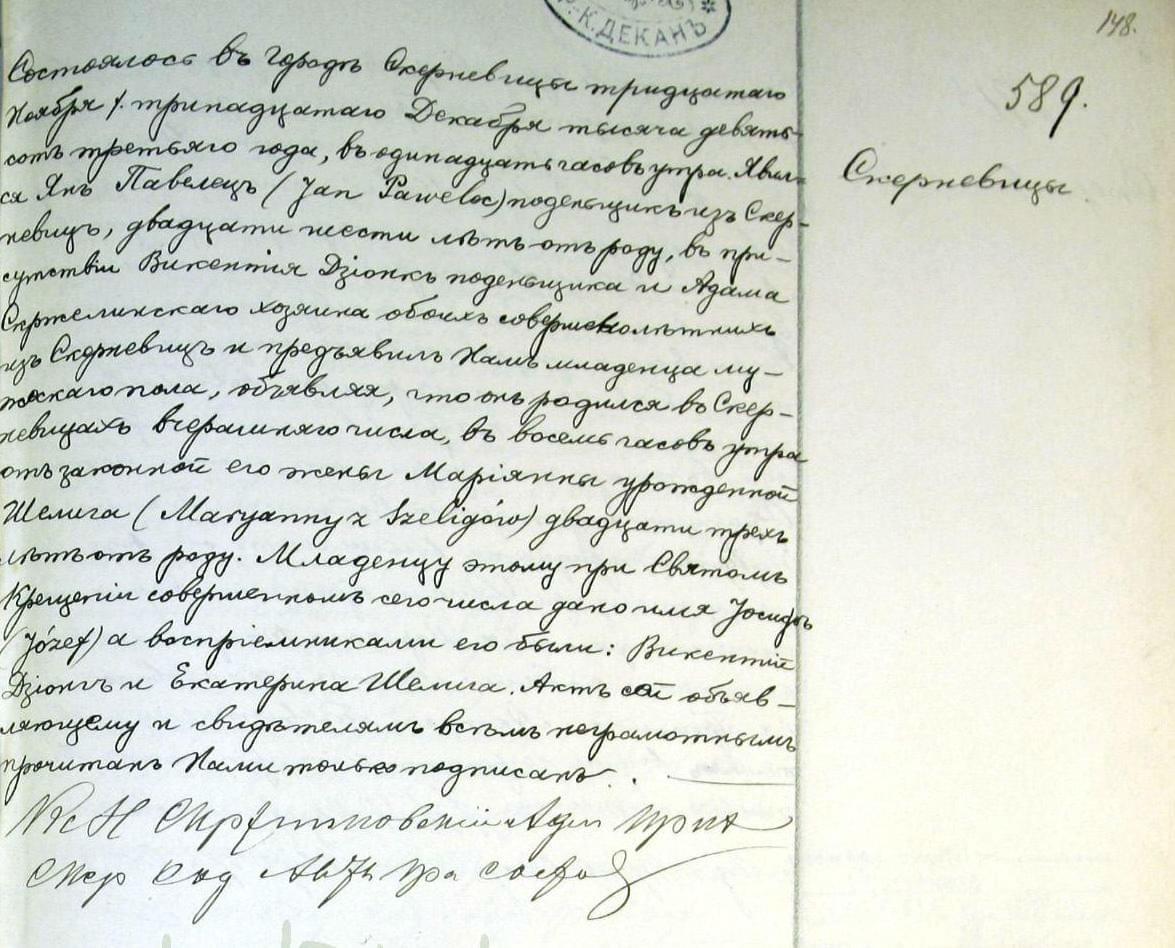 Р.-К. ДЕКАНЪ *
148.
589.
Скерневицы
Состоялось въ городѣ Скерневицы тридцатаго
Ноября /. тринадцатаго Декабря тысяча девять-
сотъ третьяго года, въ одинадцать часовъ утра. Явил-
ся Янъ Павелецъ (Jan Pawelec) поденьщикъ изъ Скер-
невицъ, двадцати шести лѣтъ отъ роду, въ при-
сутствіи Викентія Дзіонкъ поденьщика и Адама
Скржелинскаго хозяина обоихъ совершенолѣтнихъ
изъ Скерневицъ и предъявилъ Намъ младенца му-
жескаго пола, объявляя, что онъ родился въ Скер-
невицахъ вчерашняго числа, въ восемь часовъ утра
отъ законной его жены Маріянны урожденной
Шелига (Maryanny z Szeligów) двадцати трехъ
лѣтъ отъ роду. Младенцу этому при Святомъ
Крещеніи совершенномъ сего числа дано имя Іосифъ
(Józef) а воспріемниками его были: Викентій
Дзіонгъ и Екатерина Шелига. Актъ сей объяв-
ляющему и свидѣтелямъ всѣмъ неграмотнымъ
прочитанъ Нами только подписанъ.